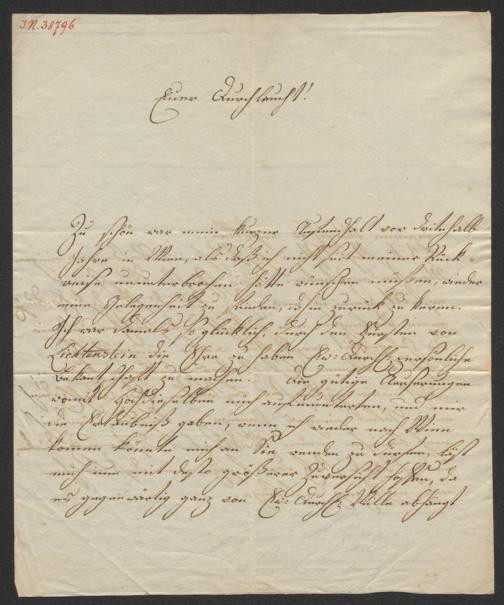 I.N. 38796
Euer Durchlaucht!
Zu schön war mein kurzer Aufenthalt vor dritthalb
Jahre in Wien, als daß ich nicht seit meiner Rück-
reise ununterbrochen hätte wünschen müssen, wieder
eine Gelegenheit zu finden, dahin zurück zu kommen.
Ich war damals so glücklich, durch den Fürsten von
Lichtenstein die Ehre zu haben Ew: Durchl: persönliche
Bekantschaft zu machen. Die gütige Aeußerungen
womit Höchstdieselben mich aufmunterten, und mir
die Erlaubniß gaben, wenn ich wieder nach Wien
komen könnte mich an Sie wenden zu dürfen, läßt
mich nun mit desto größerer Zuversicht hoffen, da
es gegenwärtig ganz von Ew: Durchl: Wille abhängt